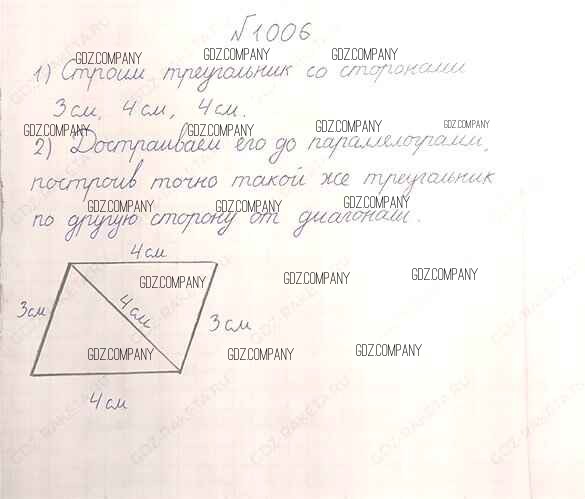 №1006
GDZ.COMPANY GDZ.COMPANY GDZ.COMPANY
1) Строим треугольник со сторонами
3 см, 4 см, 4 см.
GDZ.COMPANY GDZ.COMPANY GDZ.COMPANY GDZ.COMPANY
2) Достраиваем его до параллелограмм,
построив точно такой же треугольник
GDZ.COMPANY GDZ.COMPANY GDZ.COMPANY
по другую сторону от диагонали.
4 см
GDZ.COMPANY GDZ.COMPANY GDZ.COMPANY
3 см 4 см 3 см
GDZ.COMPANY GDZ.COMPANY GDZ.COMPANY
4 см
GDZ-RAKETA.RU